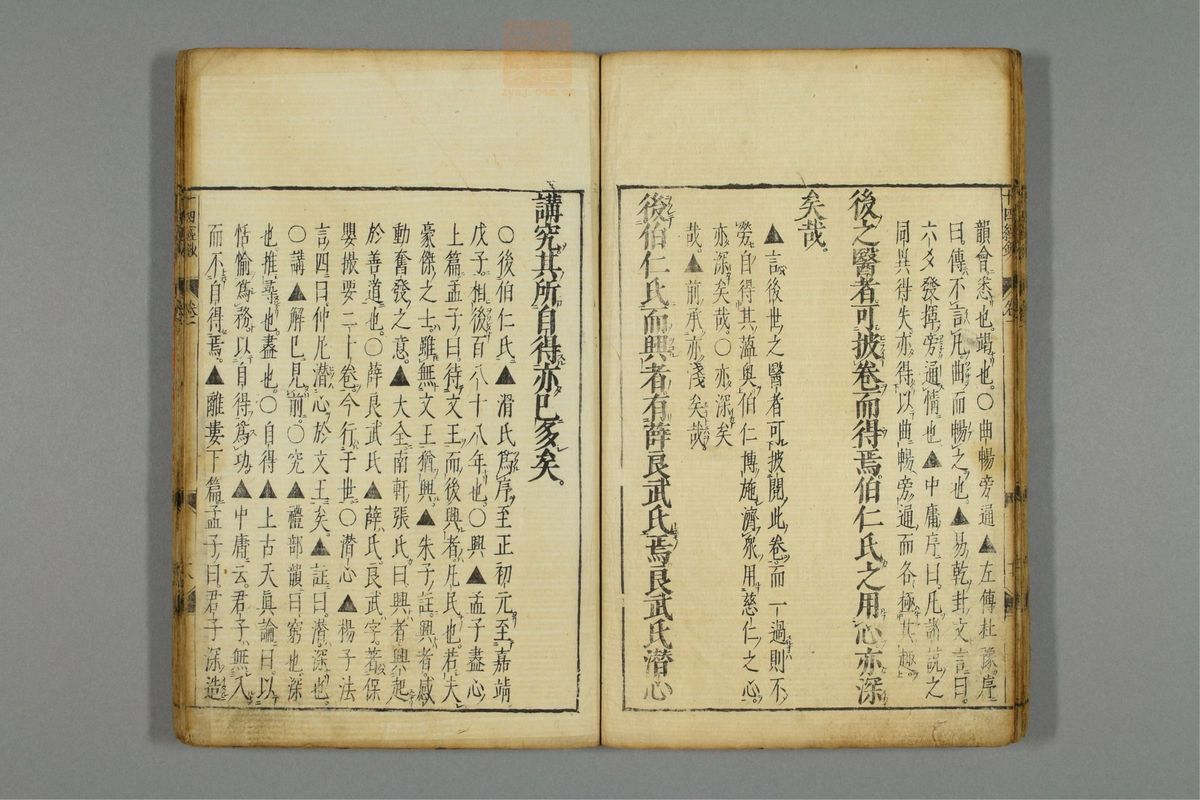 韻會悉也竭也〇曲暢旁通▲左傳杜豫序
曰傳不言凡曲而暢之也▲易乾卦文言曰
六爻發揮旁通情也▲中庸序曰凢諸説之
同異得失亦得以曲暢旁通而各極其趣
後之醫者可披卷而得焉伯仁氏之用心亦深
矣哉
▲言後世之醫者可披閲此卷而一過則不
勞自得其薀奥伯仁博施濟衆用慈仁之心
亦深矣哉〇亦深矣
哉▲前承亦淺矣哉
後伯仁氏而興者有薛良武氏焉良武氏潜心
講究其所自得亦已多矣
〇後伯仁氏▲滑氏爲序至正初元至嘉靖
戊子相後百八十八年也〇興▲孟子盡心
上篇孟子曰待文王而後興者凢民也若夫
豪傑之士雖無文王猶興▲朱子註興者感
動奮發之意▲大全南軒張氏曰興者興起
於善道也〇薛良武氏▲薛氏良武字著保
嬰撮要二十卷今行于世〇潜心▲楊子法
言四曰仲尼潜心於文王矣▲註曰潜深也
〇講▲解已見前〇究▲禮部韻曰窮也深
也推尋也盡也〇自得▲上古天真論曰以
恬愉爲務以自得爲功▲中庸云君子無入
而不自得焉▲離婁下篇孟子曰君子深造
十四經
卷一